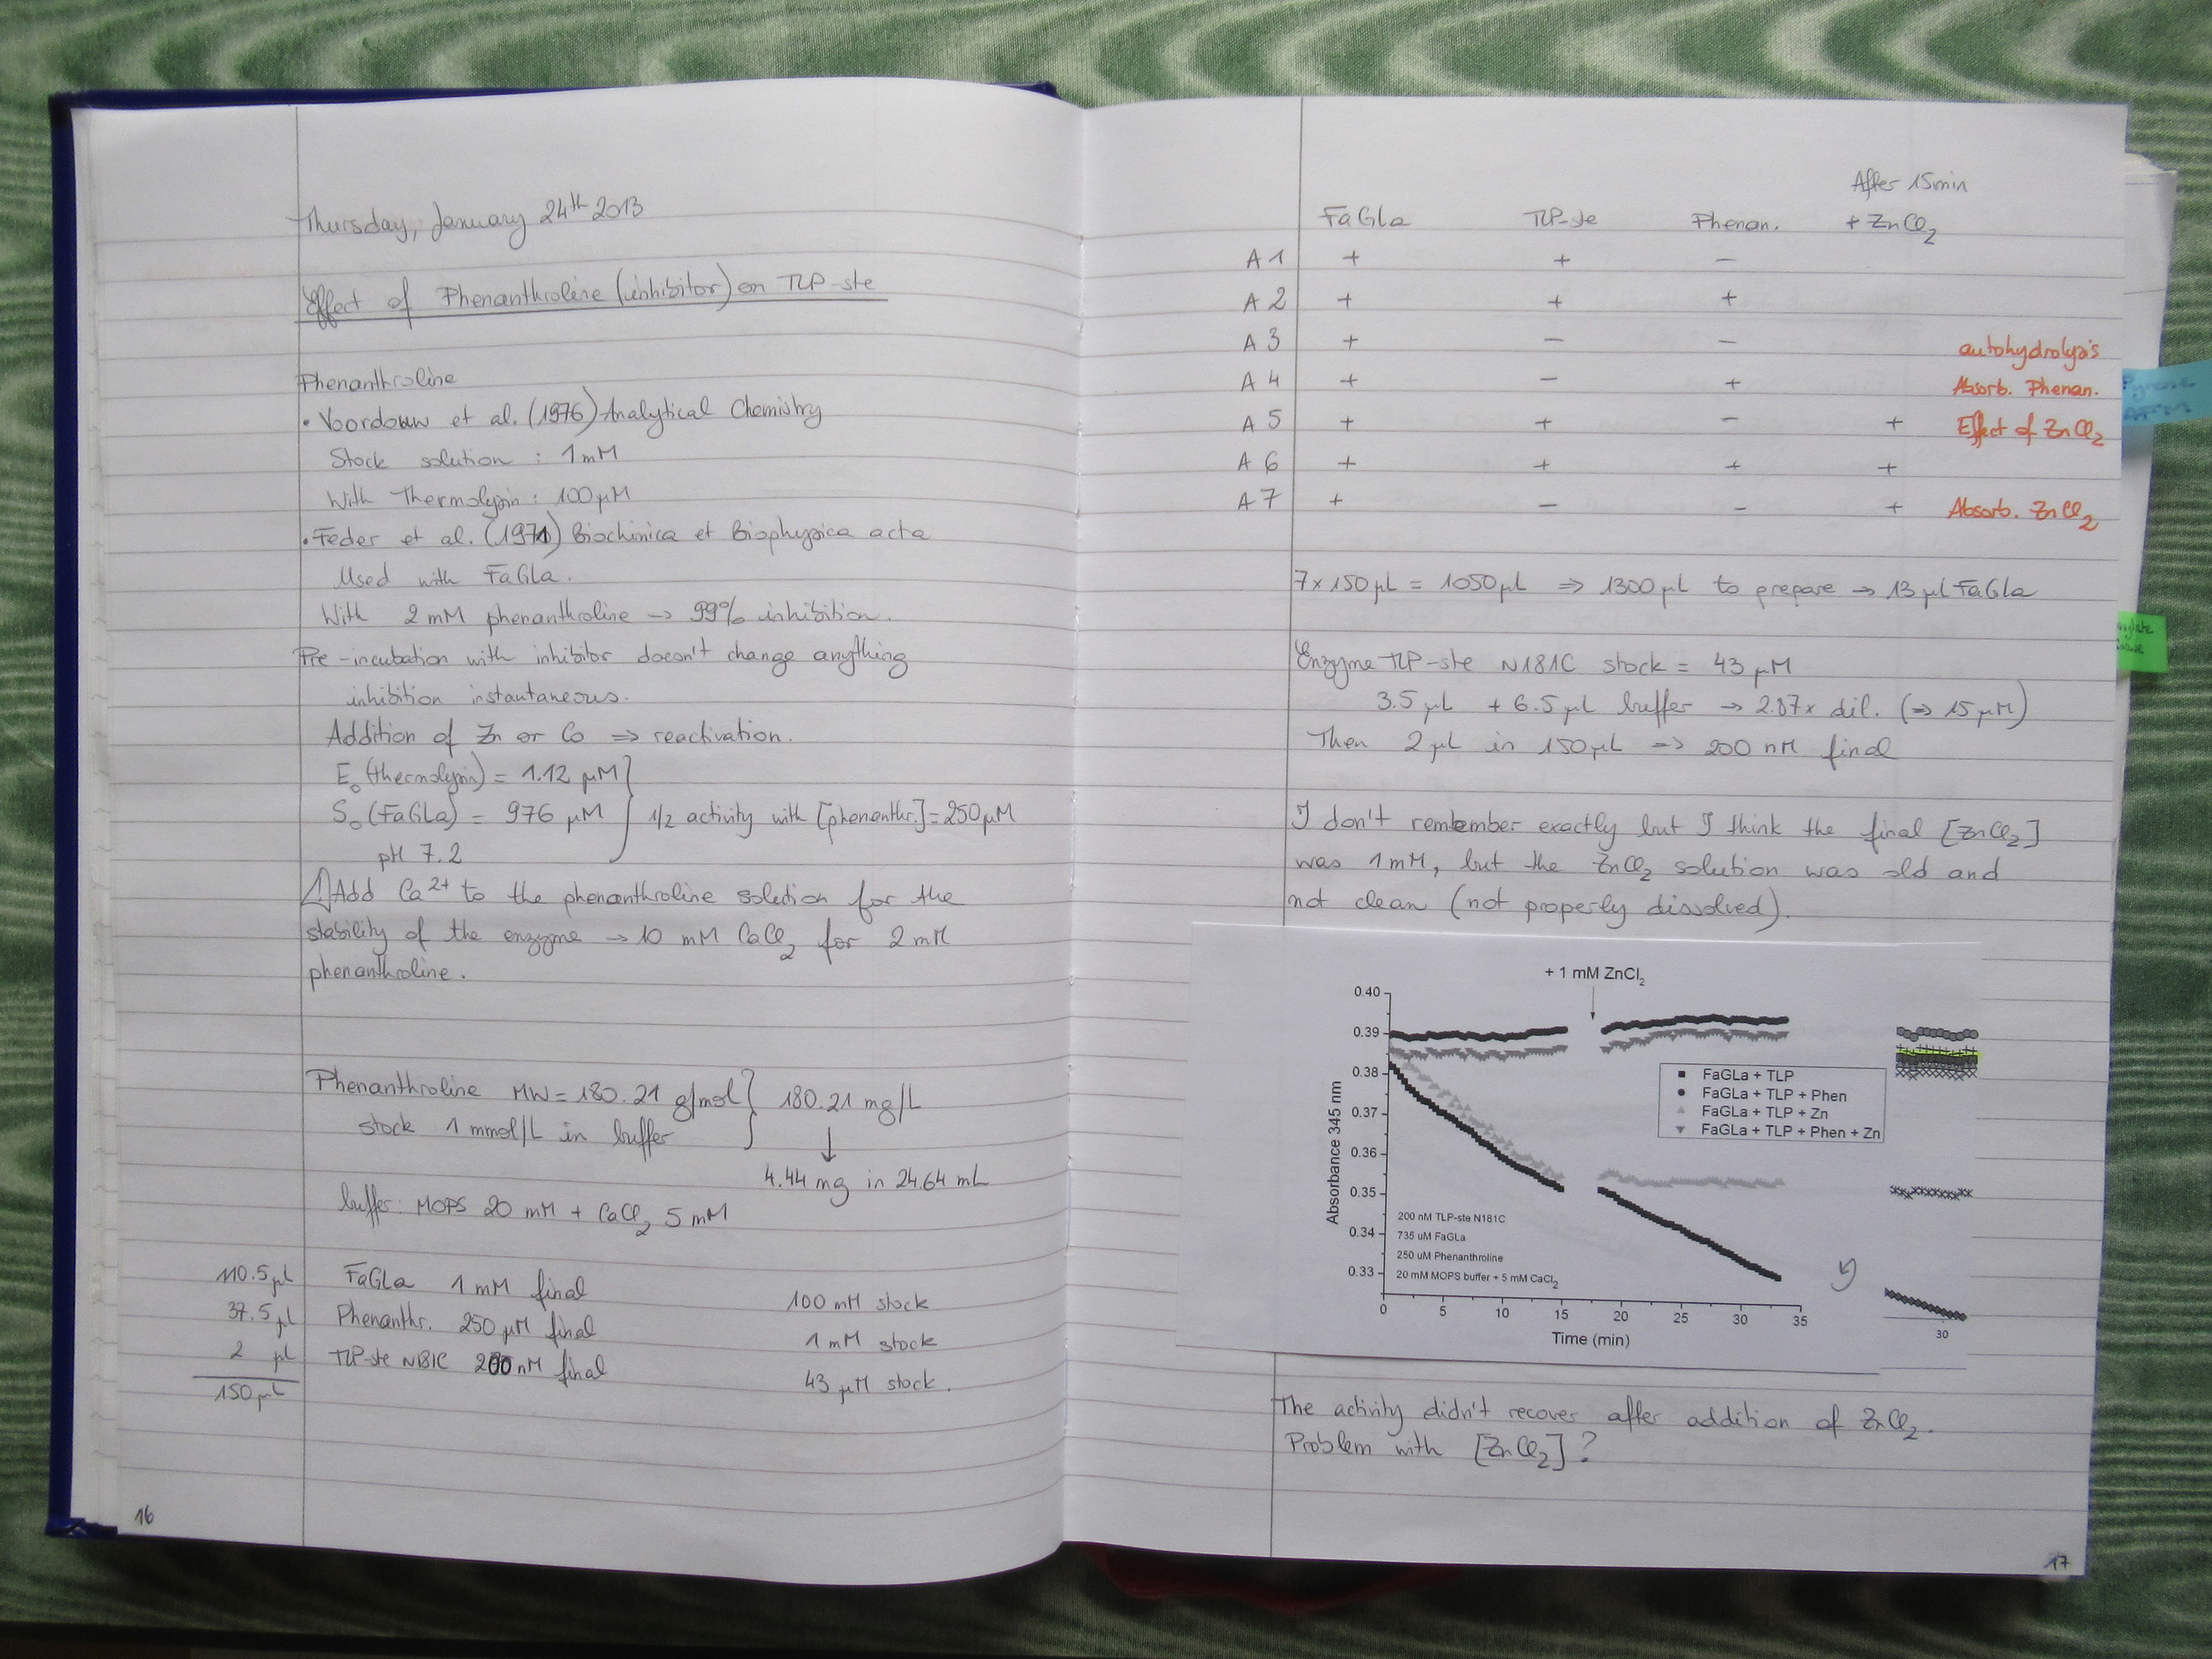 Thursday, January 24th 2013
Effect of Phenanthroline (inhibitor) on TLP-ste
Phenanthroline
• Voordouw et al. (1976) Analytical Chemistry
Stock solution : 1 mM
With Thermolysin : 100 µM
• Feder et al. (1971) Biochimica et Biophysica acta
Used with FaGla.
With 2 mM phenanthroline → 99% inhibition.
Pre-incubation with inhibitor doesn't change anything
inhibition instantaneous.
Addition of Zn or Co ⇒ reactivation.
E₀ (thermolysin) = 1.12 µM
S₀ (FaGla) = 976 µM } 1/2 activity with [phenanthr.] = 250 µM
pH 7.2
⚠ Add Ca²⁺ to the phenanthroline solution for the
stability of the enzyme → 10 mM CaCl₂ for 2 mM
phenanthroline.
Phenanthroline MW = 180.21 g/mol } 180.21 mg/L
stock 1 mmol/L in buffer
↓
4.44 mg in 24.64 mL
buffer: MOPS 20 mM + CaCl₂ 5 mM
110.5 µl FaGLa 1 mM final 100 mM stock
37.5 µl Phenanthr. 250 µM final 1 mM stock
2 µl TLP-ste N181C 200 nM final 43 µM stock.
150 µL
16
After 15min
FaGLa TLP-ste Phenan. + ZnCl₂
A1 + + −
A2 + + +
A3 + − − autohydrolysis
A4 + − + Absorb. Phenan.
A5 + + − + Effect of ZnCl₂
A6 + + + +
A7 + − − + Absorb. ZnCl₂
7 x 150 µl = 1050 µl ⇒ 1300 µl to prepare → 13 µl FaGla
Enzyme TLP-ste N181C stock = 43 µM
3.5 µL + 6.5 µL buffer → 2.87x dil. (⇒ 15 µM)
Then 2 µL in 150 µL ⇒ 200 nM final
I don't remember exactly but I think the final [ZnCl₂]
was 1 mM, but the ZnCl₂ solution was old and
not clean (not properly dissolved).
+ 1 mM ZnCl₂
0.40
0.39
0.38
0.37
0.36
0.35
0.34
0.33
Absorbance 345 nm
FaGLa + TLP
FaGLa + TLP + Phen
FaGLa + TLP + Zn
FaGLa + TLP + Phen + Zn
200 nM TLP-ste N181C
735 uM FaGLa
250 uM Phenanthroline
20 mM MOPS buffer + 5 mM CaCl₂
0 5 10 15 20 25 30 35
Time (min)
30
The activity didn't recover after addition of ZnCl₂.
Problem with [ZnCl₂] ?
17